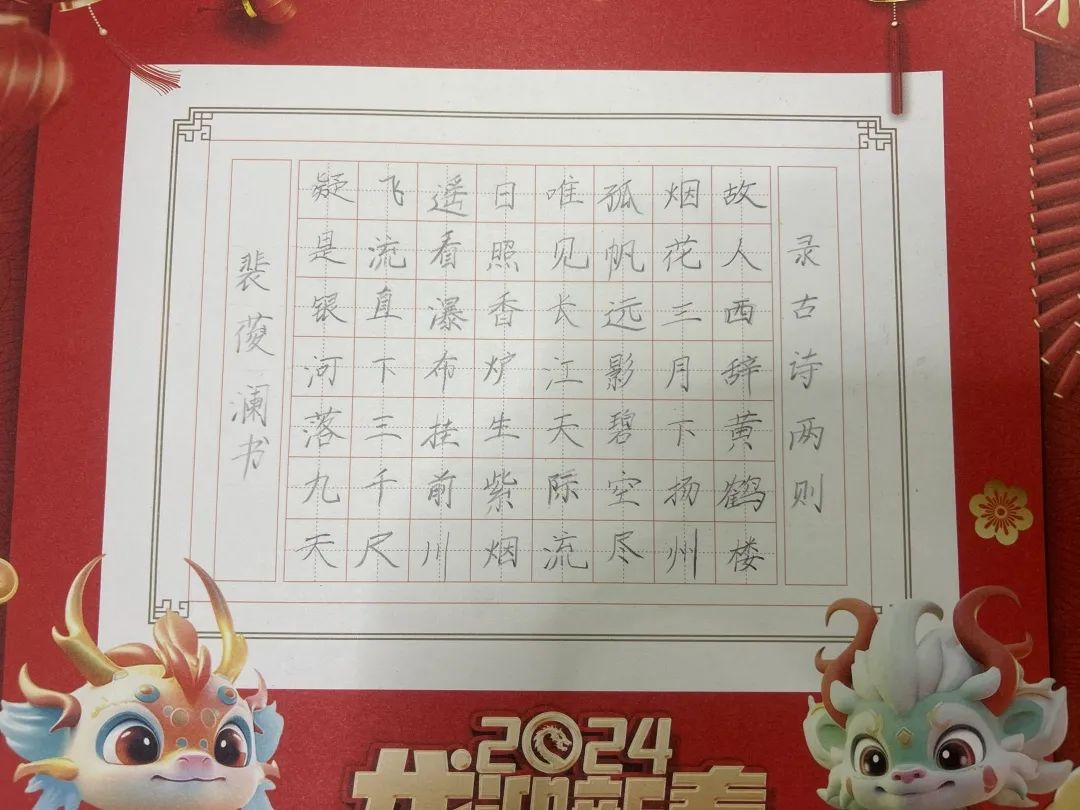 录古诗两则
故人西辞黄鹤楼
烟花三月下扬州
孤帆远影碧空尽
唯见长江天际流
日照香炉生紫烟
遥看瀑布挂前川
飞流直下三千尺
疑是银河落九天
裴蓤澜书
2024
龙迎新春